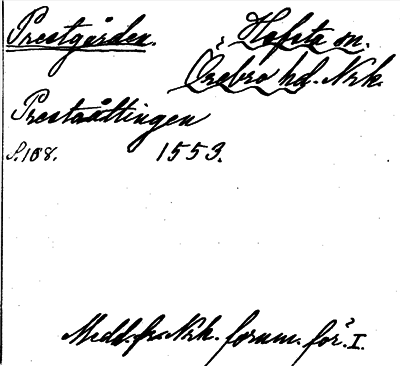 Prestgården. Hofsta sn.
Örebro hd. Nrk.
Prestaåttingen
S. 108. 1553.
Medd. fr. Nrk. fornm. för. I.